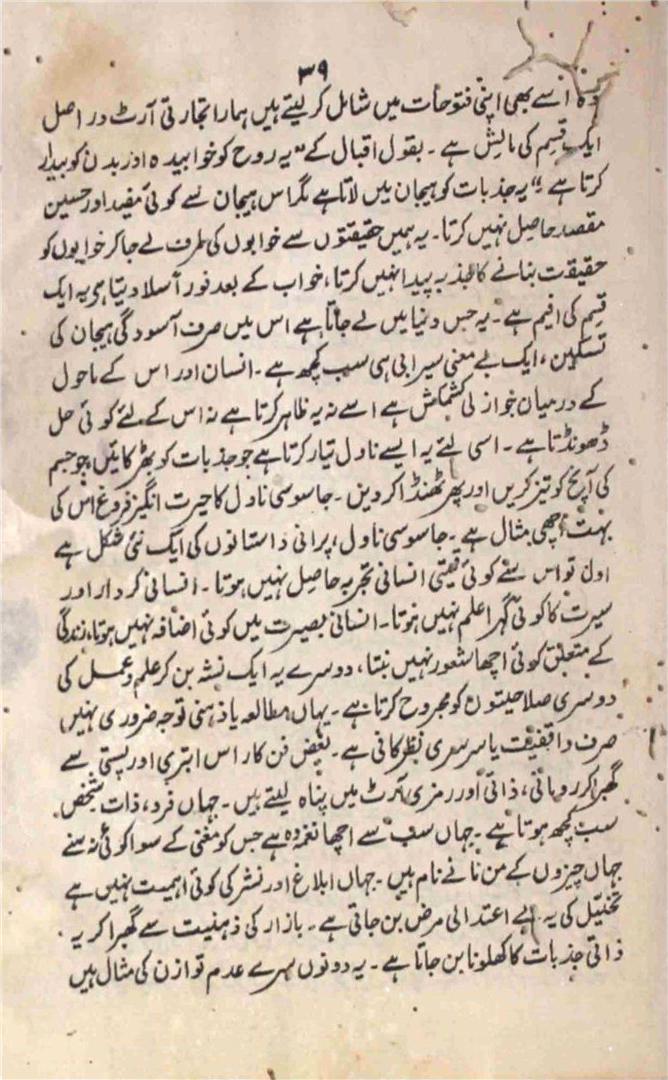 ۳۹
وہ اسے بھی اپنی فتوحات میں شامل کر لیتے ہیں ہمارا تجارتی آرٹ در اصل
ایک قسم کی مالش ہے ۔ بقول اقبال کے ”یہ روح کو خوابیدہ اور بدن کو بیدار
کرتا ہے“ یہ جذبات کو ہیجان میں لاتا ہے مگر اس ہیجان سے کوئی مفید اور حسین
مقصد حاصل نہیں کرتا ۔ یہ ہمیں حقیقتوں سے خوابوں کی طرف لے جا کر خوابوں کو
حقیقت بنانے کا جذبہ پیدا نہیں کرتا ، خواب کے بعد فوراً سلا دیتا ہی یہ ایک
قسم کی افیم ہے ۔ یہ جس دنیا میں لے جاتا ہے اس میں صرف آسودگی ہیجان کی
تسکین ، ایک بے معنی سیرابی ہی سب کچھ ہے ۔ انسان اور اس کے ماحول
کے درمیان جو ازلی کشمکش ہے اسے نہ یہ ظاہر کرتا ہے نہ اس کے لئے کوئی حل
ڈھونڈتا ہے ۔ اسی لئے یہ ایسے ناول تیار کرتا ہے جو جذبات کو بھڑکائیں ، جو جسم
کی آنچ کو تیز کریں اور پھر ٹھنڈا کر دیں ۔ جاسوسی ناول کا حیرت انگیز فروغ اس کی
بہت اچھی مثال ہے ۔ جاسوسی ناول ، پرانی داستانوں کی ایک نئی شکل ہے
اول تو اس سے کوئی قیمتی انسانی تجربہ حاصل نہیں ہوتا ۔ انسانی کردار اور
سیرت کا کوئی گہرا علم نہیں ہوتا ۔ انسانی بصیرت میں کوئی اضافہ نہیں ہوتا ، زندگی
کے متعلق کوئی اچھا شعور نہیں بنتا ، دوسرے یہ ایک نشہ بن کر علم و عمل کی
دوسری صلاحیتوں کو مجروح کرتا ہے ۔ یہاں مطالعہ یا ذہنی توجہ ضروری نہیں
صرف واقفیت یا سرسری نظر کافی ہے ۔ بعض فن کار اس ابتری اور پستی سے
گھبرا کر رومانی ، ذاتی اور رمزی آرٹ میں پناہ لیتے ہیں ۔ جہاں فرد ، ذات شخص
سب کچھ ہوتا ہے ۔ جہاں سب سے اچھا نغمہ وہ ہے جس کو مغنی کے سوا کوئی نہ سنے
جہاں چیزوں کے من مانے نام ہیں ۔ جہاں ابلاغ اور نشر کی کوئی اہمیت نہیں ہے
تخئیل کی یہ بے اعتدالی مرض بن جاتی ہے ۔ بازار کی ذہنیت سے گھبرا کر یہ
ذاتی جذبات کا کھلونا بن جاتا ہے ۔ یہ دونوں سرے عدم توازن کی مثال ہیں